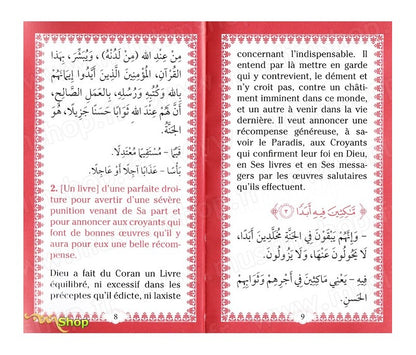 مِنْ عِنْدِ الله (مِنْ لَدُنْهُ) ، وَيُبَشِّرَ، بِهَذَا
القُرْآنِ، المُؤْمِنِينَ الَّذِينَ أَيَّدُوا إِيمَانَهُمْ
بِالله وَكُتُبِهِ وَرُسُلِهِ، بِالعَمَلِ الصَّالِحِ،
أَنَّ لَهُمْ عِنْدَ اللهِ ثَوَابًا حَسَنًا جَزِيلًا، هُوَ
الجَنَّةُ.
قَيِّمًا - مُسْتَقِيمًا مُعْتَدِلًا.
بَأْسًا - عَذَابًا آجِلًا أَوْ عَاجِلًا.
2. [Un livre] d'une parfaite droi-
ture pour avertir d'une sévère
punition venant de Sa part et
pour annoncer aux Croyants qui
font de bonnes œuvres qu'il y
aura pour eux une belle récom-
pense.
Dieu a fait du Coran un Livre
équilibré, ni excessif dans les
préceptes qu'il édicte, ni laxiste
8
Shop
concernant l'indispensable. Il
entend par là mettre en garde
qui y contrevient, le dément et
n'y croit pas, contre un châti-
ment imminent dans ce monde,
et un autre à venir dans la vie
dernière. Il veut annoncer une
récompense généreuse, à sa-
voir le Paradis, aux Croyants
qui confirment leur foi en Dieu,
en Ses livres et en Ses messa-
gers par les œuvres salutaires
qu'ils effectuent.
﴿ مَّٰكِثِينَ فِيهِ أَبَدًا ﴿٣﴾ ﴾
- وَإِنَّهُمْ يَبْقَوْنَ فِي الجَنَّةِ مُخَلَّدِينَ أَبَدًا،
لَا يَحُولُونَ عَنْهَا، وَلَا يَزُولُونَ.
فِيهِ - يَعْنِي مَاكِثِينَ فِي أَجْرِهِمْ وَثَوَابِهِمْ
الحَسَنِ.
9